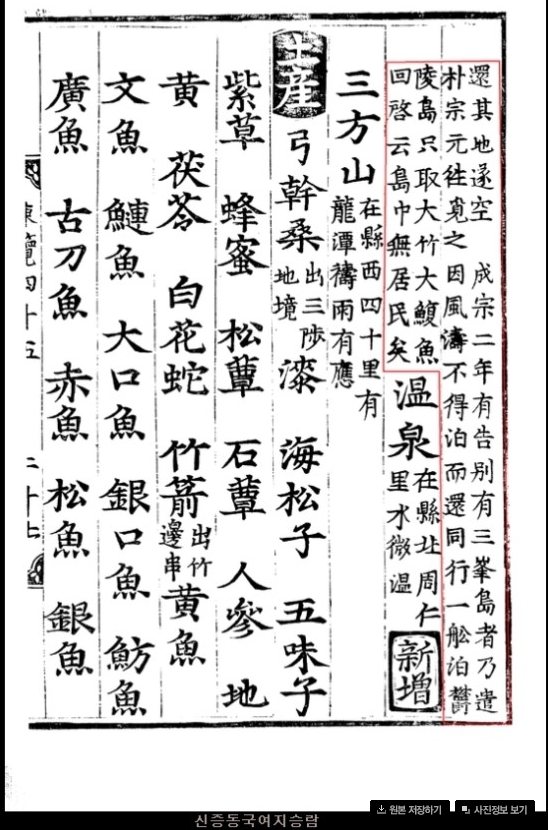 還其地遂空 成宗二年有告别有三峯島者乃遣
朴宗元徃覔之因風濤不得泊而還同行一舩泊欝
陵島只取大竹大鰒魚
回啓云島中無居民矣
溫泉
在縣北周仁
里水微溫
新增
三方山
在縣西四十里有
龍潭禱雨有應
土産 弓幹桑
出三陟
地境
漆 海松子 五味子
紫草 蜂蜜 松蕈 石蕈 人參 地
黄 茯苓 白花蛇 竹箭
出竹
邊串
黄魚
文魚 鰱魚 大口魚 銀口魚 魴魚
廣魚 古刀魚 赤魚 松魚 銀魚
覽四十五
원본 저장하기
사진정보 보기
신증동국여지승람